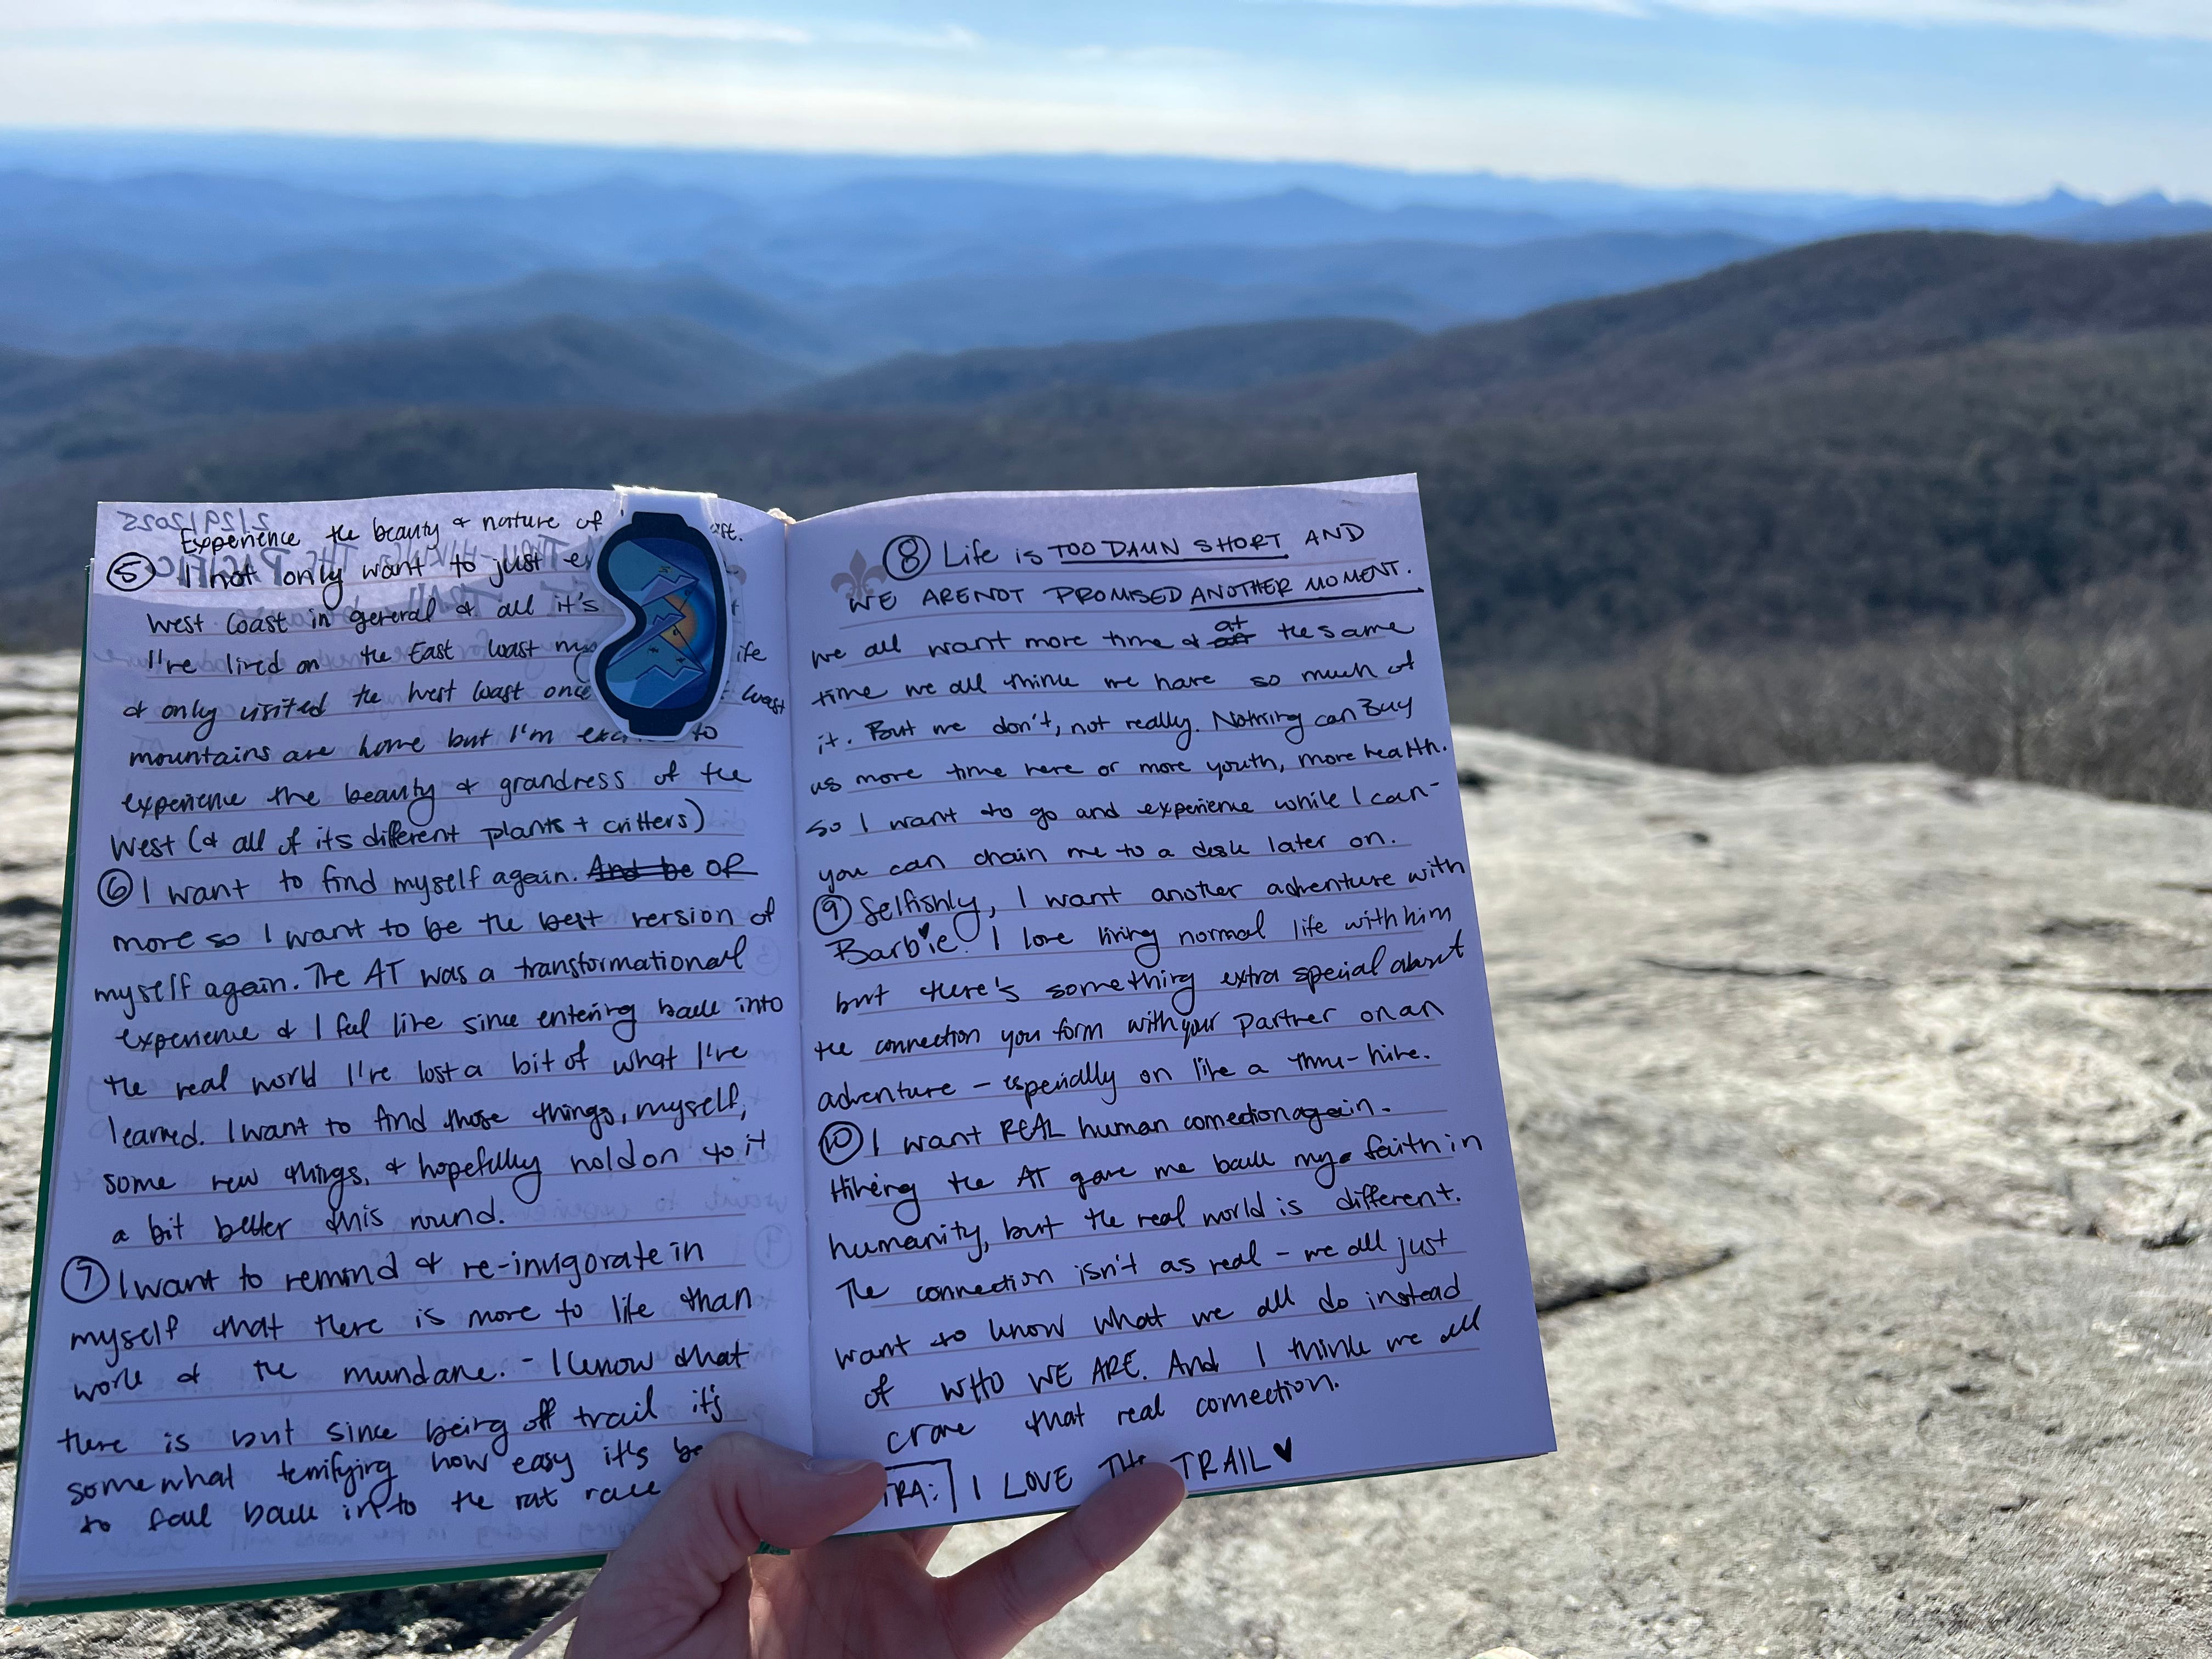 Experience the beauty & nature of
⑤ I not only want to just
West Coast in general & all it's
I've lived on the East Coast my ife
& only visited the West Coast once Coast
mountains are home but I'm to
experience the beauty & grandress of the
West (& all of its different plants + critters)
⑥ I want to find myself again. And be OR
more so I want to be the best version of
myself again. The AT was a transformational
experience & I feel like since entering back into
the real world I've lost a bit of what I've
learned. I want to find those things, myself,
some new things, & hopefully hold on to it
a bit better this round.
⑦ I want to remind & re-invigorate in
myself that there is more to life than
work & the mundane. - I know that
there is but since being off trail it's
somewhat terrifying how easy it's
to fall back into the rat race
⑧ Life is TOO DAMN SHORT AND
WE ARE NOT PROMISED ANOTHER MOMENT.
we all want more time & at the same
time we all think we have so much of
it. But we don't, not really. Nothing can Buy
us more time here or more youth, more health.
So I want to go and experience while I can-
you can chain me to a desk later on.
⑨ Selfishly, I want another adventure with
Barbie. I love living normal life with him
but there's something extra special about
the connection you form with your partner on an
adventure - especially on like a thru-hike.
⑩ I want REAL human connection again.
Hiking the AT gave me back my faith in
humanity, but the real world is different.
The connection isn't as real - we all just
want to know what we all do instead
of WHO WE ARE. And I think we all
crave that real connection.
TRA: I LOVE THE TRAIL ♥